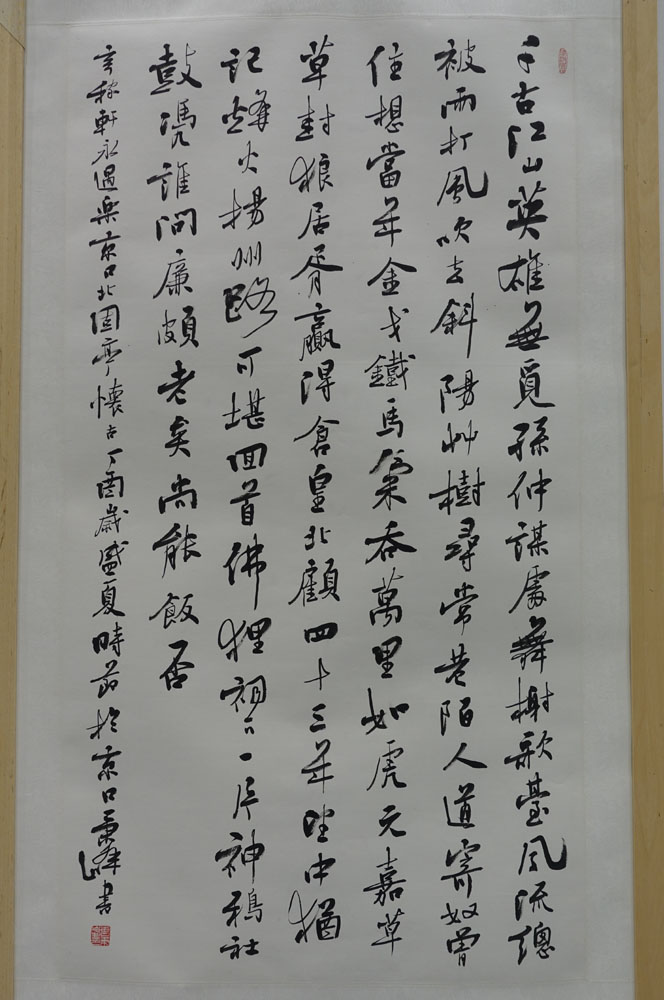 千古江山英雄無覓孫仲謀處舞榭歌臺風流總
被雨打風吹去斜陽艸樹尋常巷陌人道寄奴曾
住想當年金戈鐵馬氣吞萬里如虎元嘉草
草封狼居胥贏得倉皇北顧四十三年望中猶
記烽火揚州路可堪回首佛狸祠下一片神鴉社
鼓憑誰問廉頗老矣尚能飯否
辛稼軒永遇樂京口北固亭懷古丁酉歲盛夏時節於京口 書